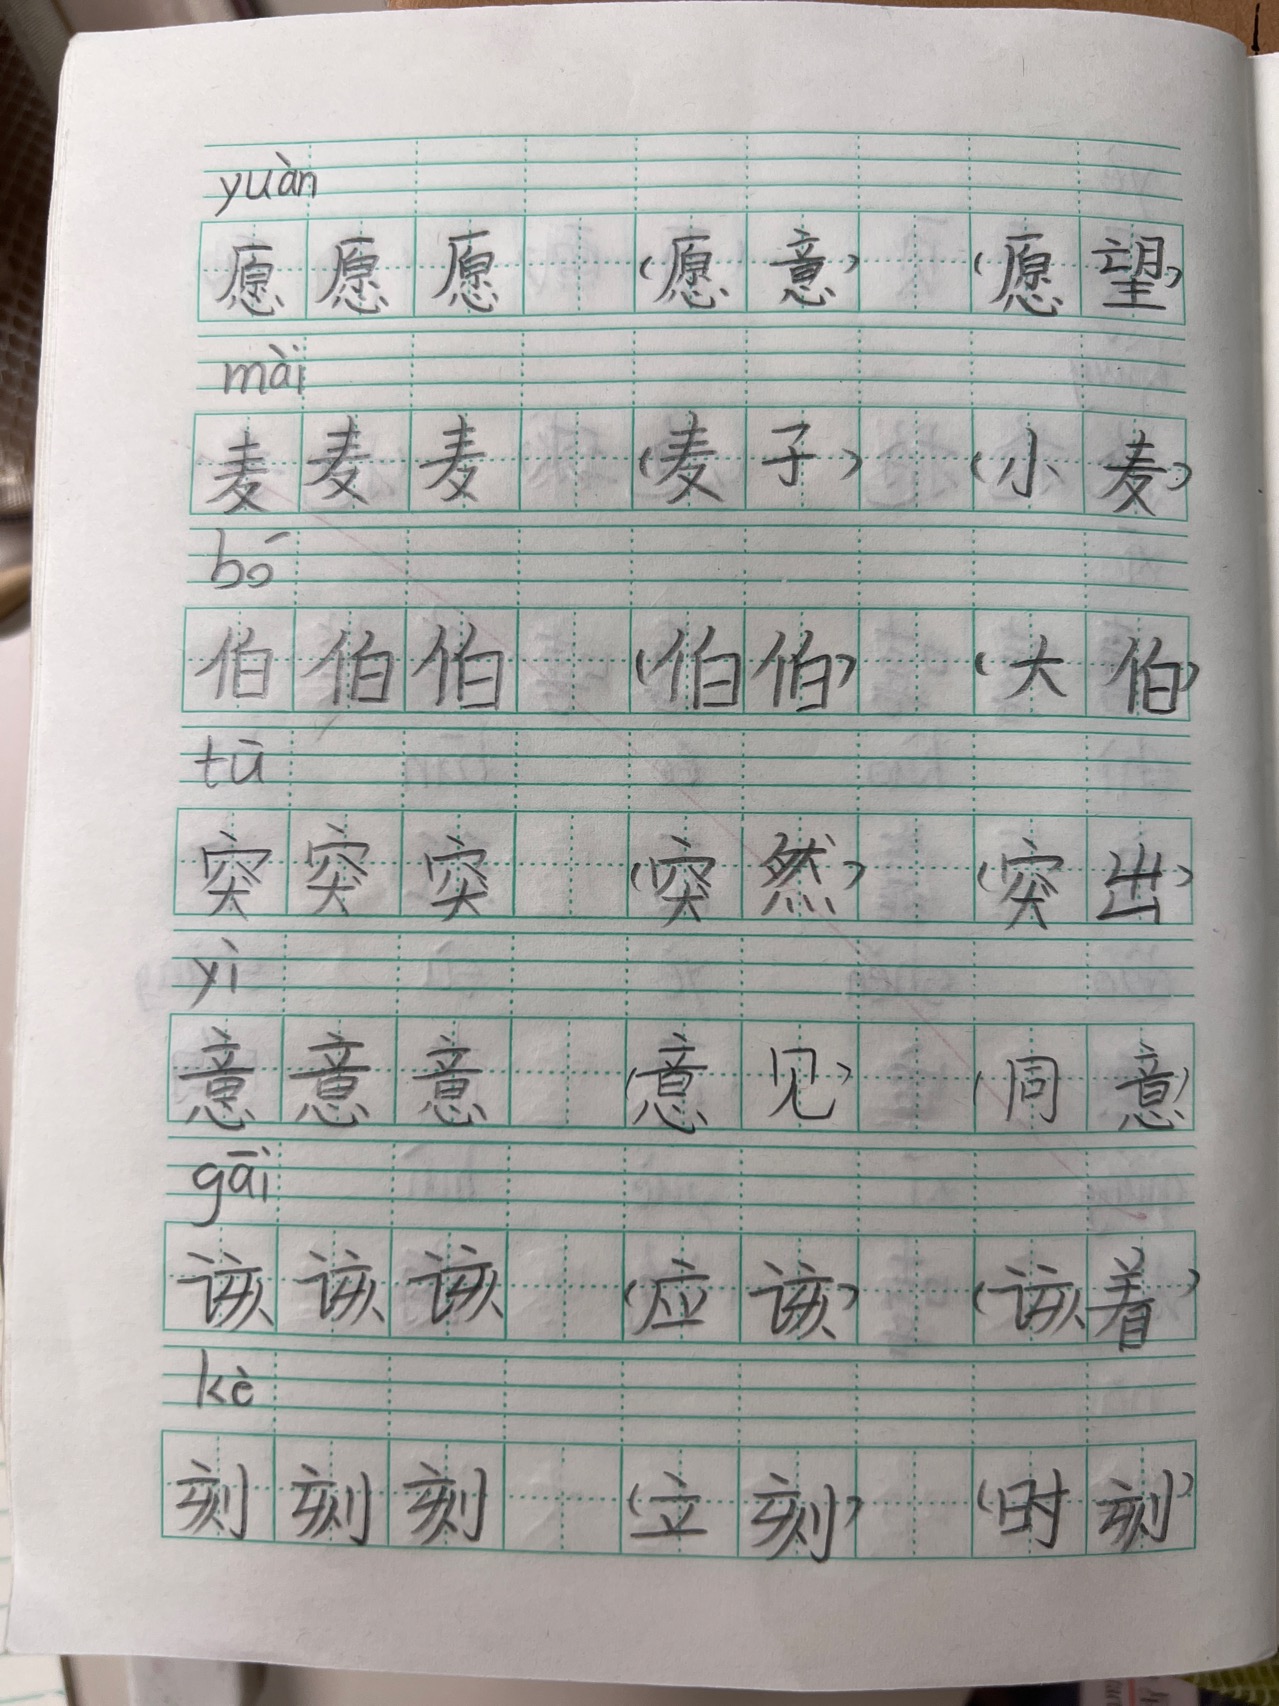 yuàn
愿 愿 愿 (愿 意) (愿 望)
mài
麦 麦 麦 (麦 子) (小 麦)
bó
伯 伯 伯 (伯 伯) (大 伯)
tū
突 突 突 (突 然) (突 出)
yì
意 意 意 (意 见) (同 意)
gāi
该 该 该 (应 该) (该 着)
kè
刻 刻 刻 (立 刻) (时 刻)